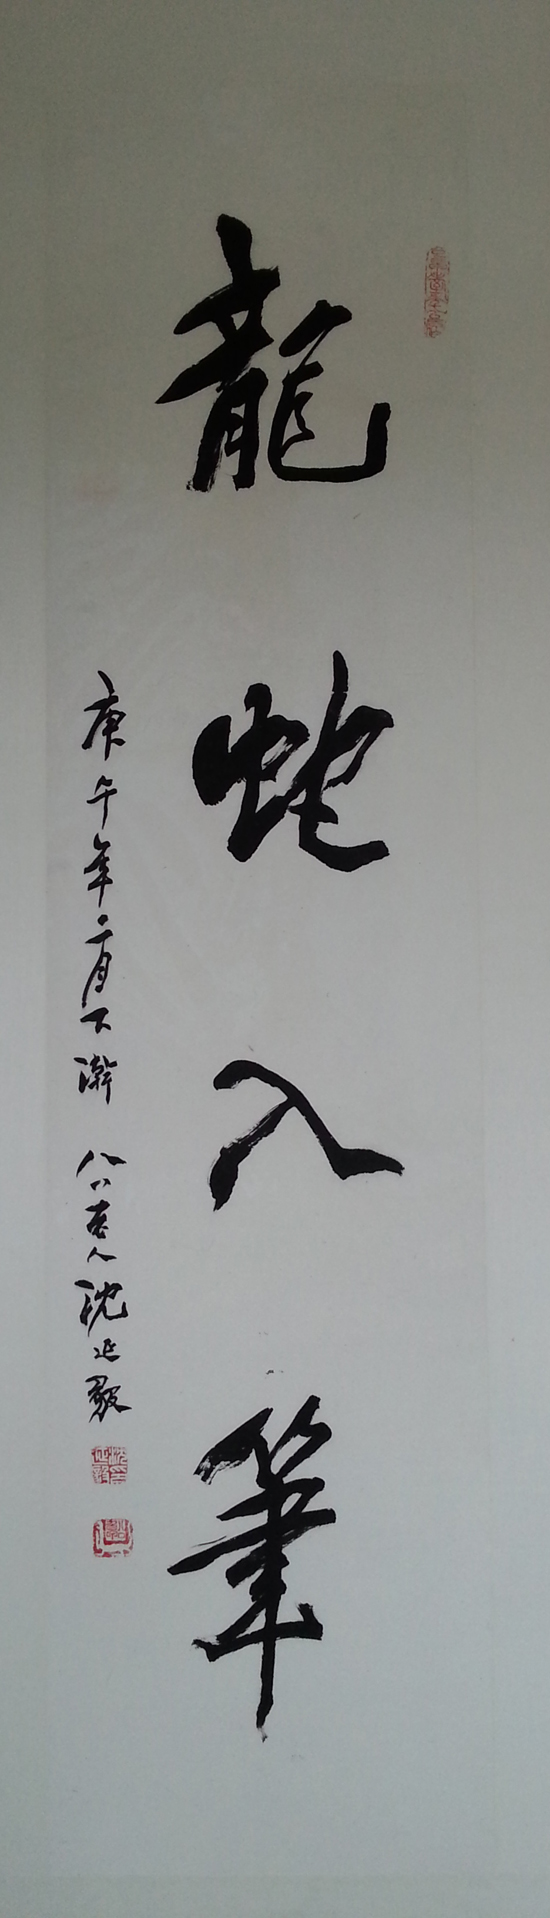 龍蛇入筆
庚午年二月下澣 八八老人沈延毅